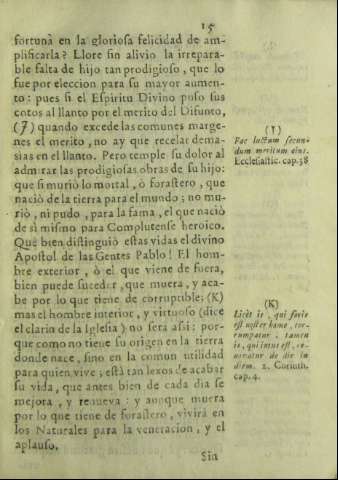 15
fortuna en la gloriosa felicidad de am-
plificarla? Llore sin alivio la irrepara-
ble falta de hijo tan prodigioso, que lo
fue por eleccion para su mayor aumen-
to: pues si el Espiritu Divino puso sus
cotos al llanto por el merito del Difunto,
(J) quando excede las comunes marge-
nes el merito, no ay que recelar dema-
sias en el llanto. Pero temple su dolor al
admirar las prodigiosas obras de su hijo:
que si murió lo mortal, ò forastero, que
naciò de la tierra para el mundo; no mu-
rió, ni pudo, para la fama, el que naciò
de sì mismo para Complutense heroico.
Què bien distinguiò estas vidas el divino
Apostol de las Gentes Pablo! El hom-
bre exterior, ò el que viene de fuera,
bien puede suceder, que muera, y aca-
be por lo que tiene de corruptible; (K)
mas el hombre interior, y virtuoso (dice
el clarin de la Iglesia) no sera asi: por-
que como no tiene su origen en la tierra
donde nace, sino en la comun utilidad
para quien vive; està tan lexos de acabar
su vida, que antes bien de cada dia se
mejora, y renueva: y aunque muera
por lo que tiene de forastero, vivirá en
los Naturales para la veneracion, y el
aplauso.
Sin
(J)
Fac luctum secun-
dum meritum eius.
Ecclesiastic. cap. 38
(K)
Licèt is, qui foris
est noster homo, cor-
rumpatur: tamen
is, qui intus est, re-
novatur de die in
diem. 2. Corinth.
cap. 4.